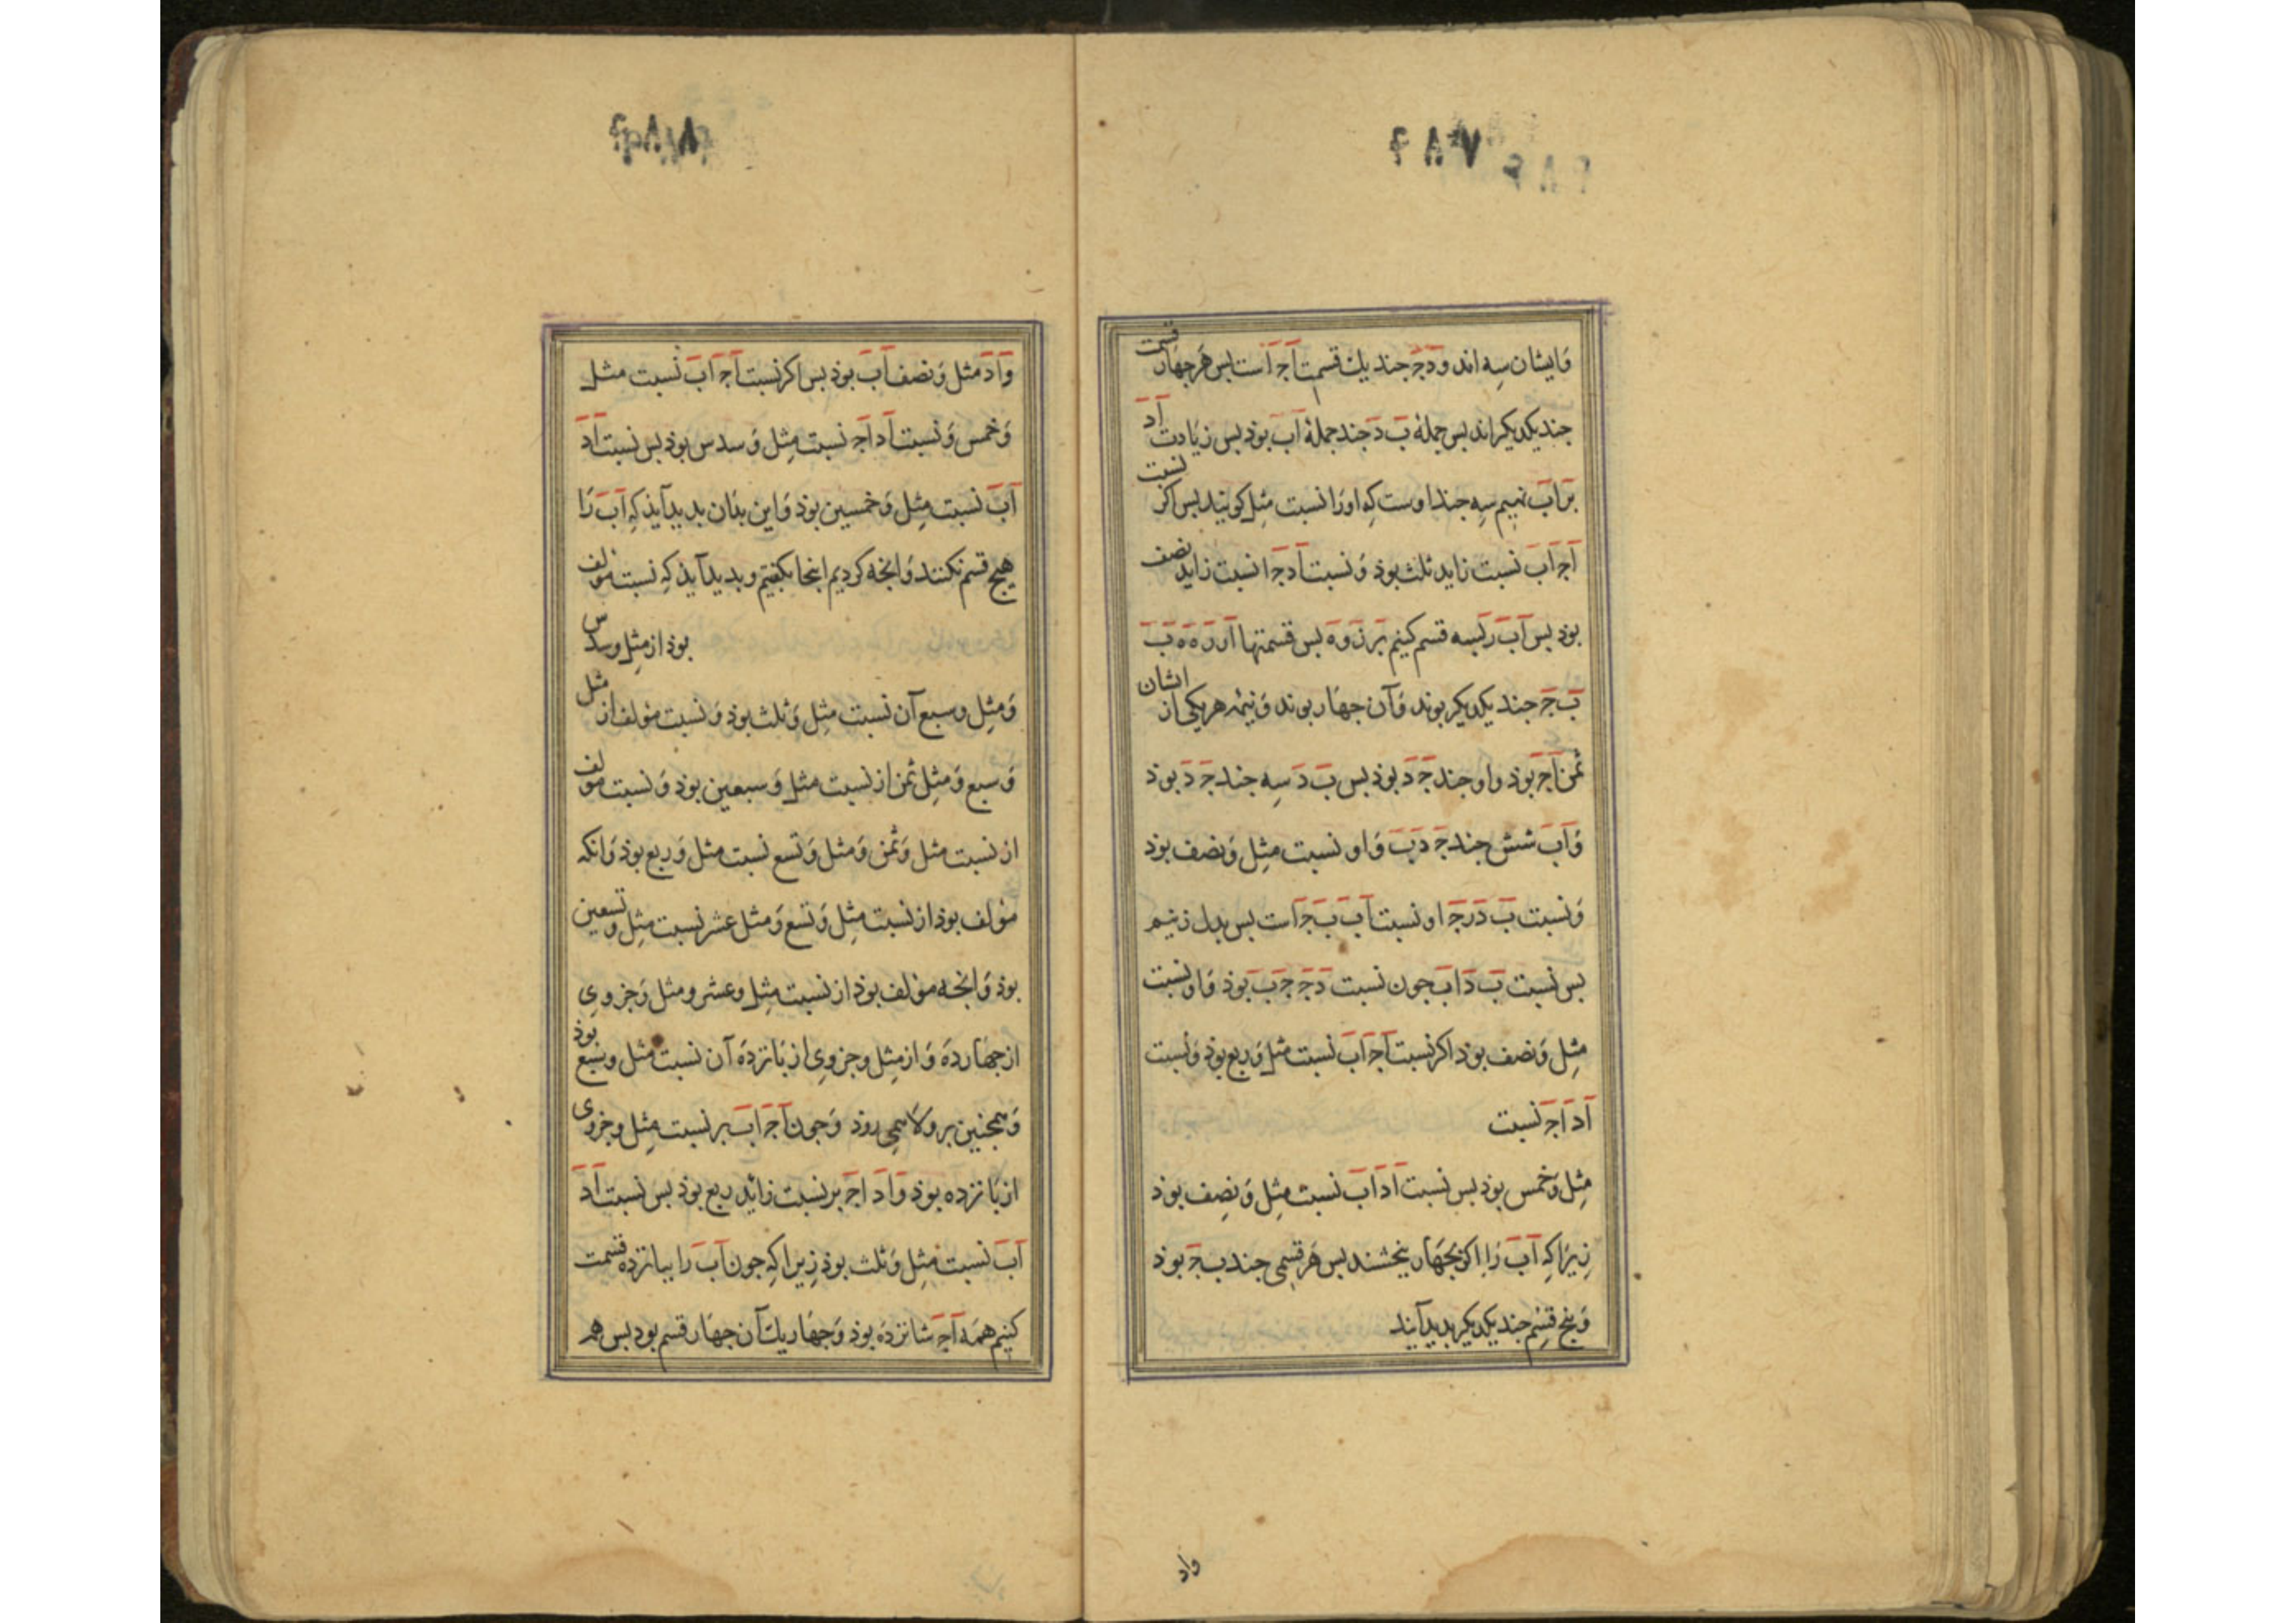 وایشان سه اند و دج جند یك قسمت اج است بس هر جهار قسمت
جند یکدیکر اند بس جملهٔ ب د جند جملهٔ اب بوذ بس زیادت اد
بر اب نهیم سه جند اوست که او را نسبت مثل کویند بس اکر نسبت
اج اب نسبت زاید ثلث بوذ و نسبت اد جا نسبت زاید نصف
بوذ بس اب به قسم کنیم بر ز و ه بس قسمتها ا ز ز ه ه ب
ب ج جند یکدیکر بوند و آن جهار بوند و نیمهٔ هر یکی از ایشان
ثمن اج بوذ و او جند ج د بوذ بس ب د سه جند ج د بوذ
و اب شش جند ج د ب و او نسبت مثل و نصف بوذ
و نسبت ب د د ج او نسبت اب ب ج است بس بدل زنیم
بس نسبت ب د اب جون نسبت د ج ج ب بوذ و او نسبت
مثل و نصف بوذ اکر نسبت اج اب نسبت مثل و ربع بوذ و نسبت
اد اج نسبت
مثل و خمس بوذ بس نسبت اد اب نسبت مثل و نصف بوذ
زیرا که اب را اکر بجهار بخشند بس هر قسمی جند ب ج بوذ
و بنج قسم جند یکدیکر بدید آیند
واد
واد مثل و نصف اب بوذ بس اکر نسبت اج اب نسبت مثل
و خمس و نسبت اد اج نسبت مثل و سدس بوذ بس نسبت اد
اب نسبت مثل و خمسین بوذ و این بذان بدید آیذ که اب را
هیج قسم نکنند و انجه کردیم اینجا بکفتیم و بدید آیذ که نسبت مولف
بوذ از مثل و سدس
و مثل و سبع آن نسبت مثل و ثلث بوذ و نسبت مولف از مثل
و سبع و مثل ثمن از نسبت مثل و سبعین بوذ و نسبت مولف
از نسبت مثل و ثمن و مثل و تسع نسبت مثل و ربع بوذ و انکه
مولف بوذ از نسبت مثل و تسع و مثل عشر نسبت مثل و تسعین
بوذ و انجه مولف بوذ از نسبت مثل و عشر و مثل و جزوی
از جهارده و از مثل و جزوی از بانزده آن نسبت مثل و سبع بوذ
و همجنین بر ولا همی روذ و جون اج اب بر نسبت مثل و جزوی
از بانزده بوذ و اد اج بر نسبت زائد ربع بوذ بس نسبت اد
اب نسبت مثل و ثلث بوذ زیرا که جون اب را ببانزده قسمت
کنیم همه اج شانزده بوذ و جهار یك آن جهار قسم بود بس هر